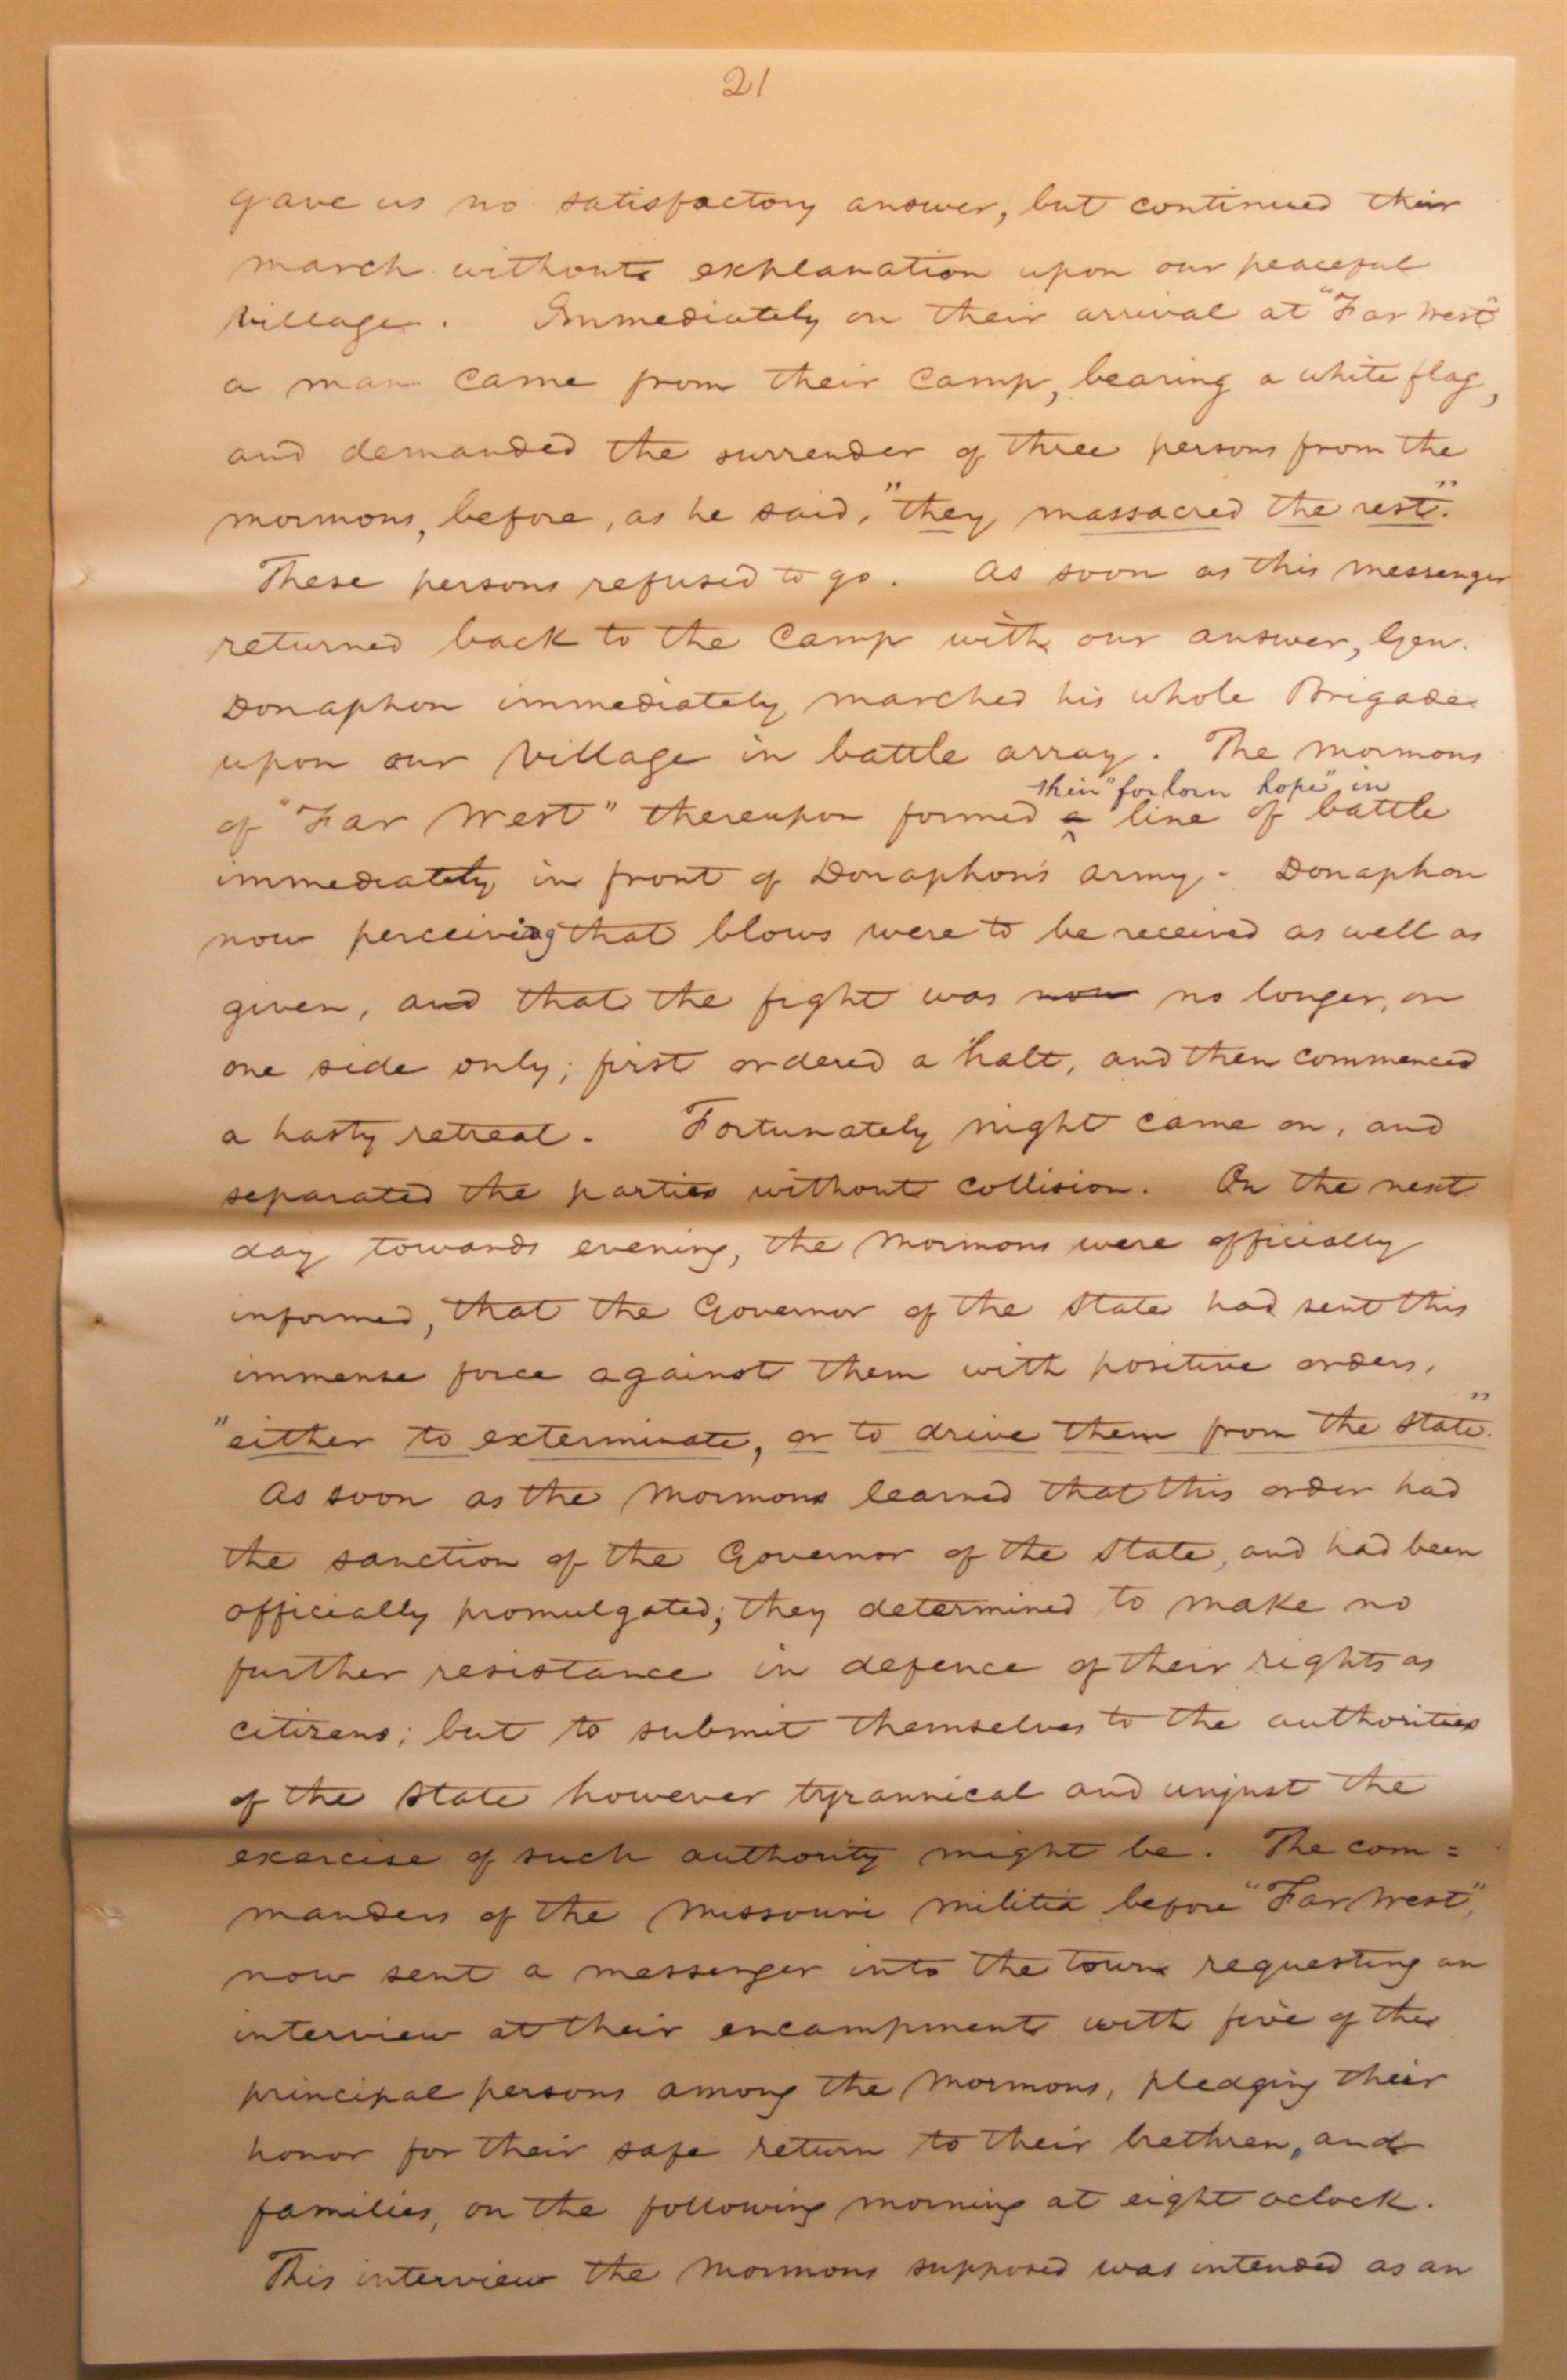 21
gave us no satisfactory answer, but continued their
march without explanation upon our peaceful
village. Immediately on their arrival at "Far West"
a man came from their camp, bearing a white flag,
and demanded the surrender of three persons from the
mormons, before, as he said, "they massacred the rest".
These persons refused to go. As soon as this messenger
returned back to the Camp with our answer, Gen.
Donaphon immediately marched his whole Brigade
upon our village in battle array. The mormons
their "forlorn hope" in
of "Far West" thereupon formed a line of battle
immediately in front of Donaphon's army. Donaphon
now perceiving that blows were to be received as well as
given, and that the fight was now no longer, on
one side only; first ordered a halt, and then commenced
a hasty retreat. Fortunately night came on, and
separated the parties without collision. On the next
day towards evening, the Mormons were officially
informed, that the Governor of the State had sent this
immense force against them with positive orders,
"either to exterminate, or to drive them from the State."
As soon as the Mormons learned that this order had
the sanction of the Governor of the State, and had been
officially promulgated; they determined to make no
further resistance in defence of their rights as
citizens; but to submit themselves to the authorities
of the State however tyrannical and unjust the
exercise of such authority might be. The com=
manders of the Missouri militia before "Far West",
now sent a messenger into the town requesting an
interview at their encampment with five of the
principal persons among the Mormons, pledging their
honor for their safe return to their brethren, and
families, on the following morning at eight oclock.
This interview the Mormons supposed was intended as an